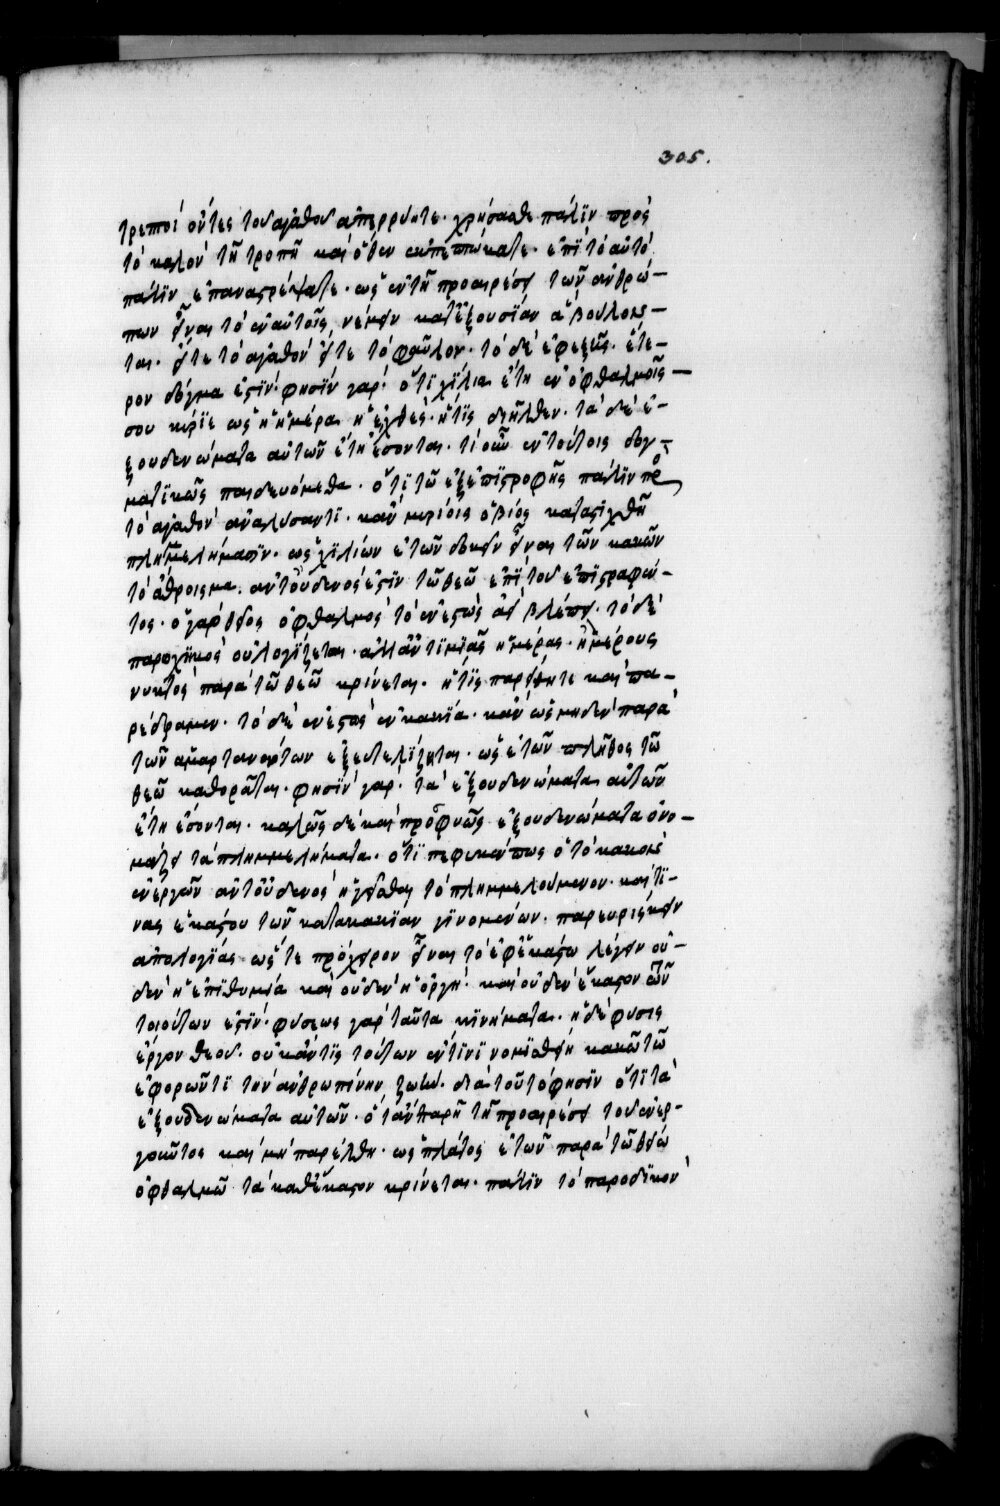 305.
τρεπτοὶ ὄντες τοῦ ἀγαθοῦ ἀπερρύητε· χρήσασθε πάλϊν πρὸς
τὸ καλὸν τῆ τροπῆ καὶ ὅθεν ἐκπεπτώκατε· ἐπῒ τὸ αὐτὸ
πάλϊν ἐπαναστρέψατε· ὡς ἐν τῆ προαιρέσει τῶν ἀνθρώ-
πων εἶναι τὸ ἐν αὐτοῖς νέμειν κατ' ἐξουσίαν ἃ βούλονται-
ται· εἴτε τὸ ἀγαθὸν εἴτε τὸ φαῦλον· τὸ δὲ ἐφεξῆς· ἕτε-
ρον δόγμα ἐστίν· φησὶν γάρ· ὅτι χίλια ἔτη ἐν ὀφθαλμοῖς-
σου κύριε ὡς ἡ ἡμέρα ἡ ἐχθές· ἥτϊς διῆλθεν· τὰ δὲ ἐ-
ξουδενώματα αὐτῶν ἔτη ἔσονται· τί οὖν ἐν τούτοις δογ-
ματικῶς παιδευόμεθα· ὅτι τῶ ἐξ ἐπιστροφῆς πάλϊν πρὸς
τὸ ἀγαθὸν ἀναλύσαντι· κἂν μυρίοις ὁ βίος καταστιχθῆ
πλημμελήμασϊν· ὡς χϊλίων ἐτῶν δοκεῖν εἶναι τῶν κακῶν
τὸ ἄθροισμα· ἀντ' οὐδενός ἐστϊν τῶ θεῶ ἐπῒ τοῦ ἐπιστραφέν-
τος· ὁ γὰρ θεῖος ὀφθαλμὸς τὸ ἐνεστὼς ἀεὶ βλέπει· τὸ δὲ
παρωχηκὸς οὐ λογίζεται· ἀλλ' ἀντὶ μιᾶς ἡμέρας· ἢ μέρους
νυκτὸς παρὰ τῶ θεῶ κρίνεται· ἥτϊς παρείθητε καὶ πα-
ρέδραμεν· τὸ δὲ ἐνεστὼς ἐν κακία· κἂν ὡς μηδὲν παρὰ
τῶν ἁμαρτανόντων ἐξευτελίζηται· ὡς ἐτῶν πλῆθος τῶ
θεῶ καθορᾶται· φησὶν γάρ· τὰ ἐξουδενώματα αὐτῶν
ἔτη ἔσονται· καλῶς δὲ καὶ προσφυῶς ἐξουδενώματα ὀνο-
μάζει τὰ πλημμελήματα· ὅτι πέφυκέν πως ὁ τὸ κακὸν
ἐνεργῶν ἀντ' οὐδενὸς ἡγεῖσθαι τὸ πλημμελούμενον· καὶ τϊ-
νας ἑκάστου τῶν κατὰ κακίαν γϊνομένων· παρευρίσκειν
ἀπολογίας ὥστε πρόχειρον εἶναι τὸ ἐφ' ἑκάστω λέγειν οὐ-
δὲν ἡ ἐπιθυμία καὶ οὐδὲν ἡ ὀργή· καὶ οὐδὲν ἕκαστον τῶν
τοιούτων ἐστϊν· φύσεως γὰρ ταῦτα κϊνήματα· ἡ δὲ φύσις
ἔργον θεοῦ· οὐκ ἄν τις τούτων ἔν τινϊ νομϊσθείη κακῶ τῶ
ἐφορῶντι τὴν ἀνθρωπίνην ζωὴν· διὰ τοῦτό φησϊν ὅτϊ τὰ
ἐξουδενώματα αὐτῶν· ὅταν παρῆ τῆ προαιρέσει τοῦ ἐνερ-
γοῦντος καὶ μὴ παρέλθη· ὡς πλάτος ἐτῶν παρὰ τῶ θείω
ὀφθαλμῶ τὰ καθέκαστον κρίνεται· πάλϊν τὸ παροδϊκὸν